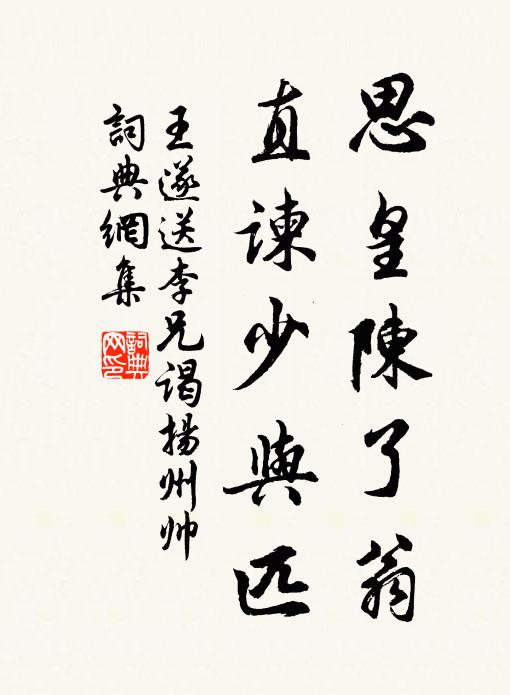 思皇陳了翁
直諫少與匹
王遂送李兄謁揚州帅
詞典網集
詞典
网印